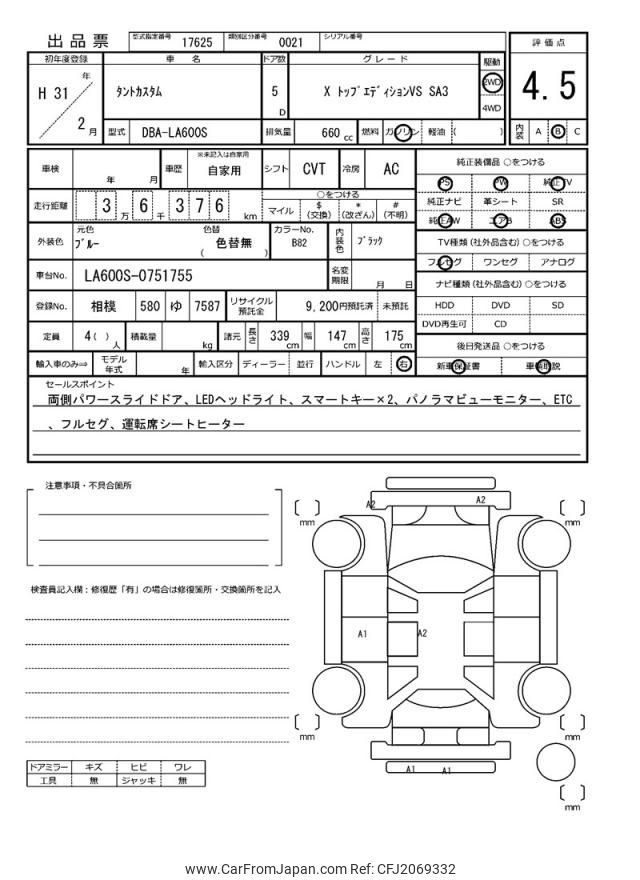 出品票 型式指定番号 17625 類別区分番号 0021 シリアル番号
評価点
4.5
内装 A B C
初年度登録 車名 ドア数 グレード 駆動
H 31 年 2 月
タントカスタム 5 D X トップエディションVS SA3 2WD 4WD
型式 DBA-LA600S 排気量 660 cc 燃料 ガソリン 軽油 ( )
車検 年 月 車歴 ※未記入は自家用 自家用 シフト CVT 冷房 AC
走行距離 3 万 6 千 3 7 6 km
○をつける
マイル $ (交換) * (改ざん) # (不明)
外装色 元色 ブルー 色替 ( 色替無 ) カラーNo. B82 内装色 ブラック
車台No. LA600S-0751755 名変期限 月 日
登録No. 相模 580 ゆ 7587 リサイクル預託金 9,200円預託済 未預託
定員 4( ) 人 積載量 kg 諸元 長さ 339 cm 幅 147 cm 高さ 175 cm
輸入車のみ⇒ モデル年式 年 輸入区分 ディーラー 並行 ハンドル 左 右
純正装備品 ○をつける
PS PW 純正TV
純正ナビ 革シート SR
純正AW エアB ABS
TV種類 (社外品含む) ○をつける
フルセグ ワンセグ アナログ
ナビ種類 (社外品含む) ○をつける
HDD DVD SD
DVD再生可 CD
後日発送品 ○をつける
新車保証書 車輌取説
セールスポイント
両側パワースライドドア、LEDヘッドライト、スマートキー×2、パノラマビューモニター、ETC
、フルセグ、運転席シートヒーター
注意事項・不具合箇所
検査員記入欄：修復歴「有」の場合は修復箇所・交換箇所を記入
ドアミラー キズ ヒビ ワレ
工具 無 ジャッキ 無
A2 A2
mm mm
A1 A2
mm mm
A1 A1
mm
www.CarFromJapan.com Ref: CFJ2069332